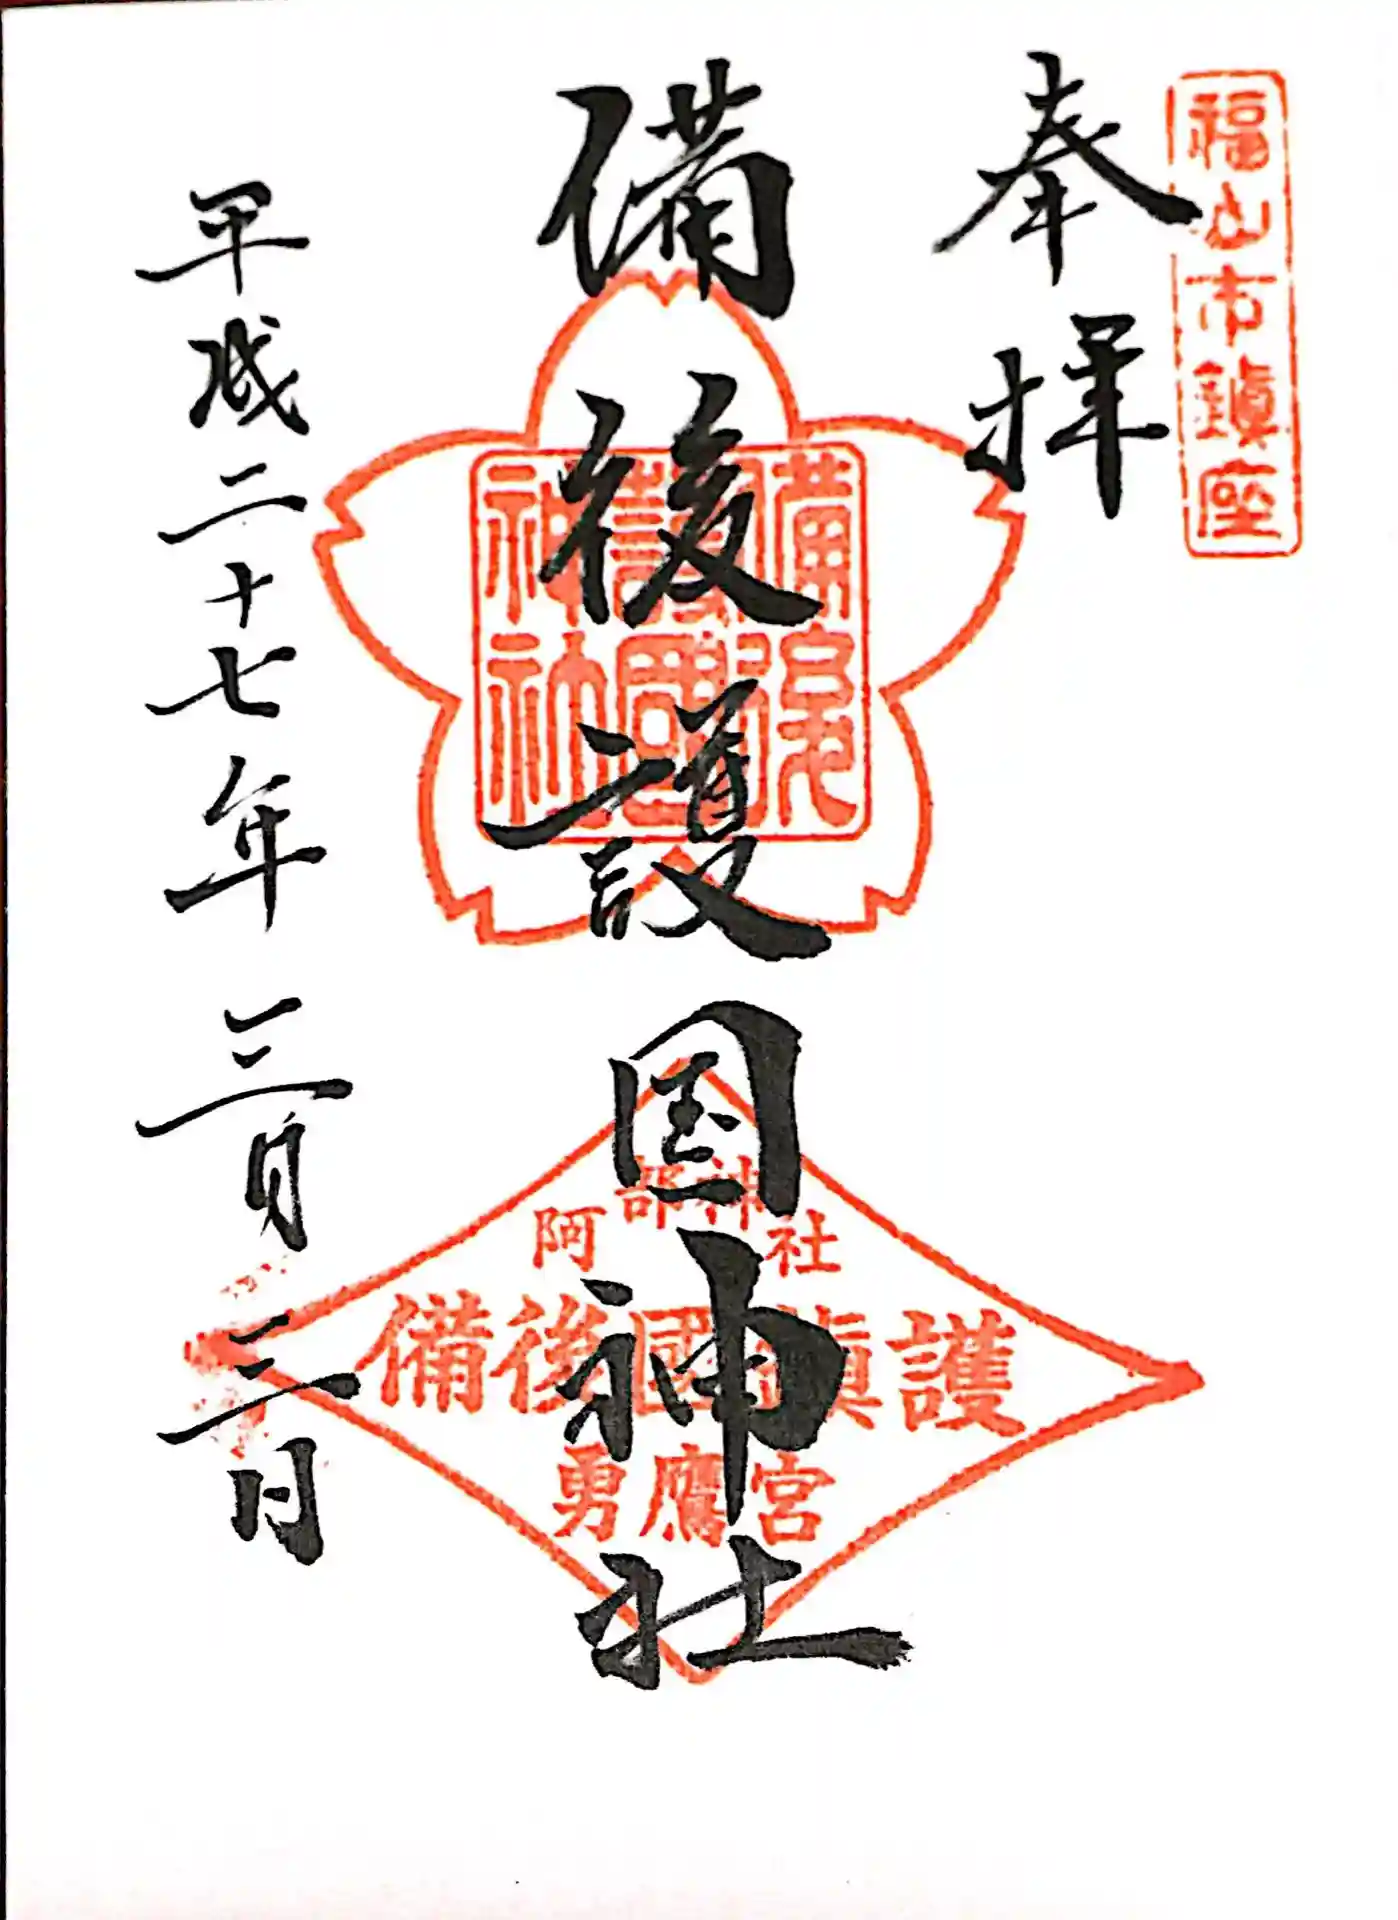 福山市鎮座
奉拝
備後護国神社
備後
護國
神社
阿部神社
備後國鎮護
勇鷹宮
平成二十七年三月三日